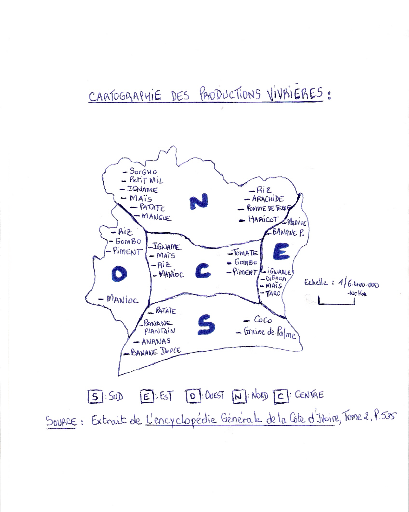 CARTOGRAPHIE DES PRODUCTIONS VIVRIÈRES :
- SORGHO
- PETIT MIL
- IGNAME
- MAÏS
- PATATE
- MANGUE
N
- RIZ
- ARACHIDE
- POMME DE TERRE
- HARICOT
- BANANE P.
- RIZ
- GOMBO
- PIMENT
O
- MANIOC
- IGNAME
- MAÏS
- RIZ
- MANIOC
C
- TOMATE
- GOMBO
- PIMENT
E
- IGNAME
- MAÏS
- TARO
Echelle : 1/6400.000
- PATATE
- BANANE
PLANTAIN
- ANANAS
- BANANE DOUCE
S
- COCO
- Graine de Palme
S : SUD E : EST O : OUEST N : NORD C : CENTRE
SOURCE : Extrait de L'encyclopédie Générale de la Côte d'Ivoire, Tome 2, P.535